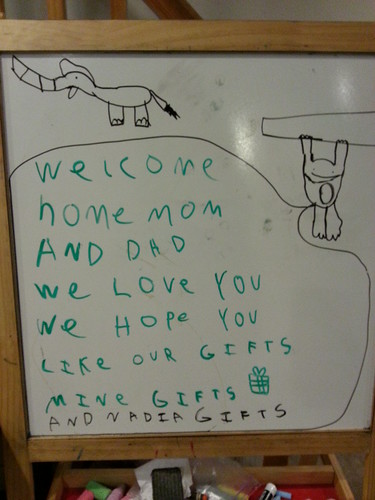 welcome
home mom
AND DAD
we LOVE YOU
we HOPe YOU
LIKe OUR GIFTS
MINe GIFTS
AND NADIA GIFTS